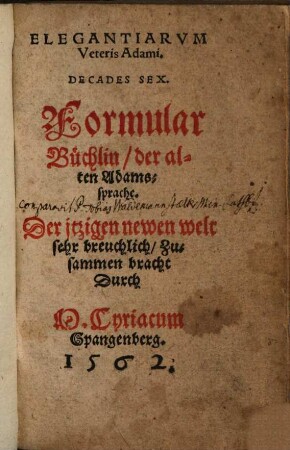 ELEGANTIARVM
Veteris Adami.
DECADES SEX.
Formular
Büchlin / der al-
ten Adams-
sprache.
Comparavit
Der jtzigen newen welt
sehr breuchlich / Zu-
sammen bracht
Durch
M. Cyriacum
Spangenberg.
1562.